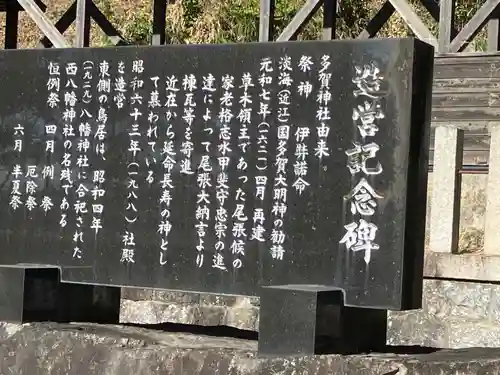 造営記念碑
多賀神社由来。
祭神　伊弉諾命
淡海（近江）国多賀大明神の勧請
元和七年（一六二一）四月　再建
草木領主であった尾張候の
家老裕志水甲斐守忠宗の進
達によって尾張大納言より
棟瓦等を寄進
近在から延命長寿の神とし
て慕われている
昭和六十三年（一九八八）社殿
を造営
東側の鳥居は、昭和四年
（一九二九）八幡神社に合祀された
西八幡神社の名残である
恒例祭　四月　例祭
厄除祭
六月　半夏祭